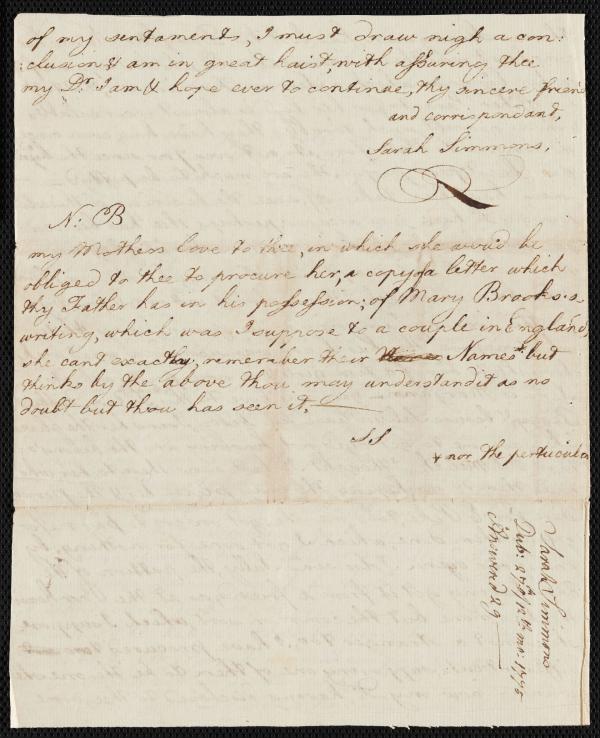 of my sentaments, I must draw nigh a con:
:clusion & am in great haist, with assuring thee
my Dr. I am & hope ever to continue, thy sincere friend
and corrispondant,
Sarah Simmons,
N: B
my Mothers love to thee, in which she woud be
obliged to thee to procure her, a copy of a letter which
thy Father has in his possession; of Mary Brooks.s
writing, which was I suppose to a couple in England,
she cant exactly, remember their Names + but
thinks by the above thou may understand it as no
doubt but thou has seen it.
SS
+ nor the perticular
Sarah Simmons
Dub: 27th/12th mo: 1775
Answerd 29